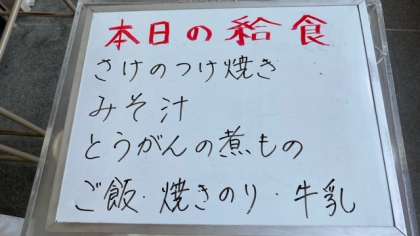 本日の給食
さけのつけ焼き
みそ汁
とうがんの煮もの
ご飯・焼きのり・牛乳